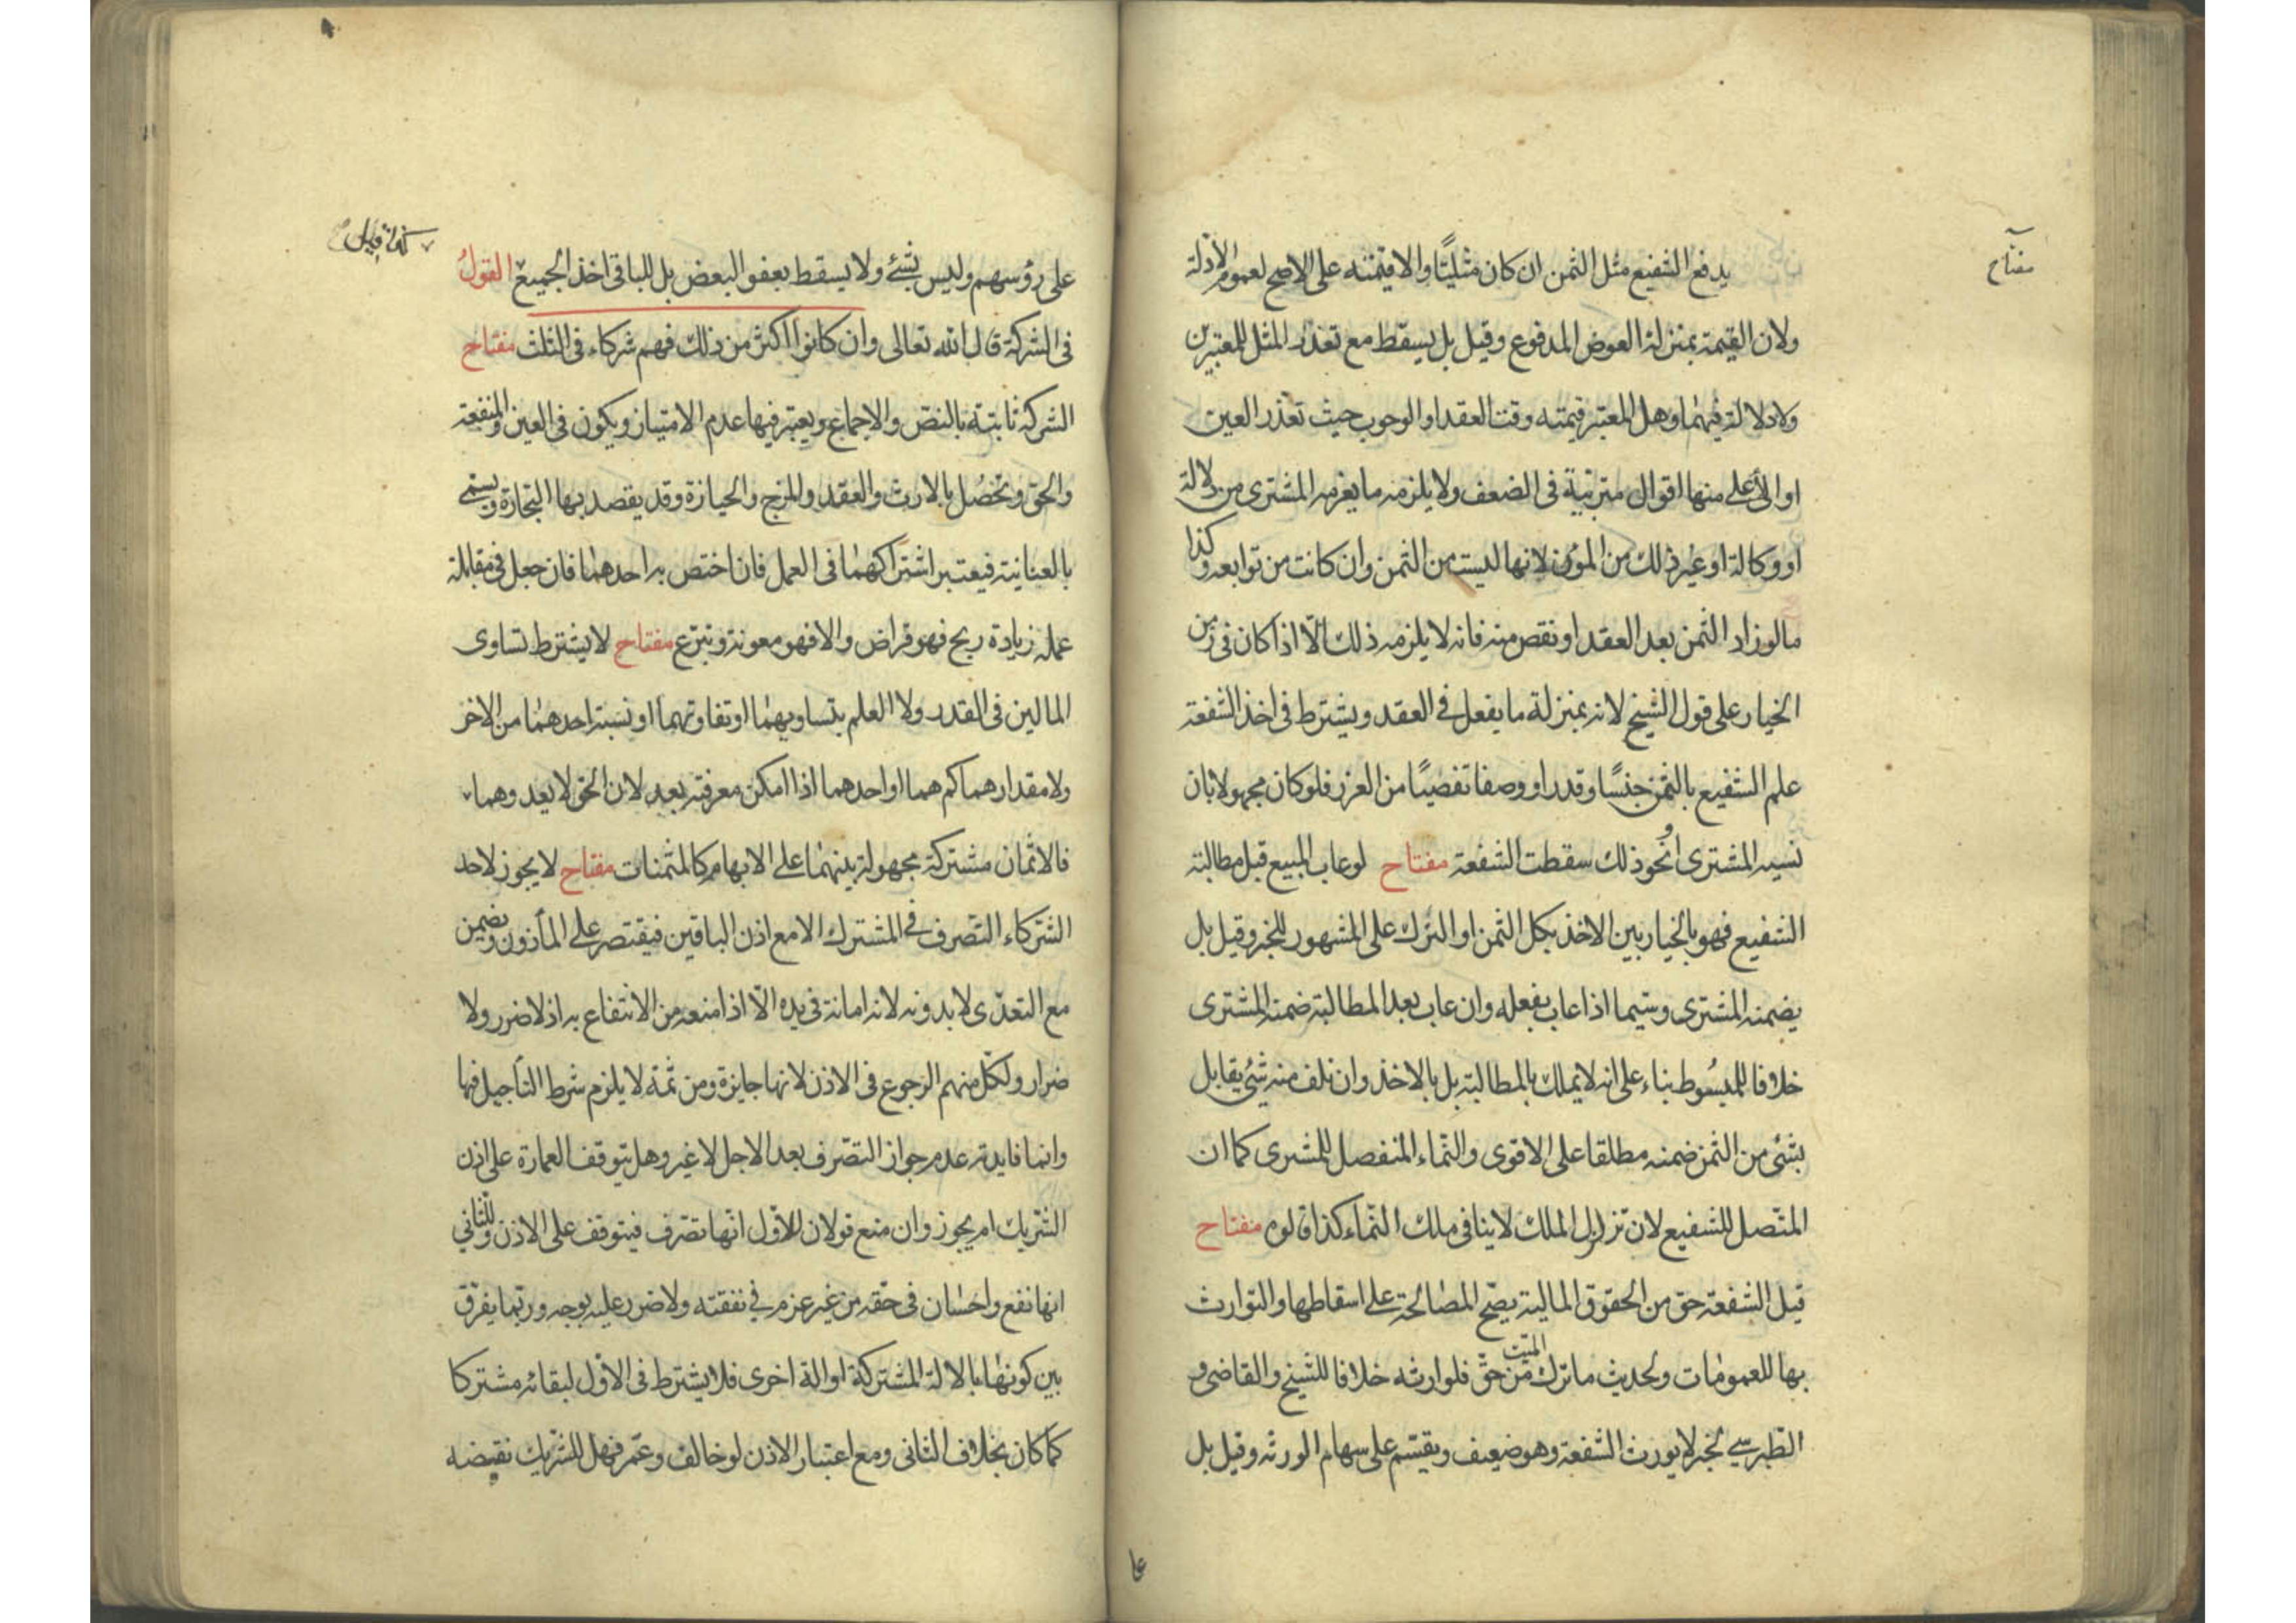 مفتاح
يدفع الشفيع مثل الثمن ان كان مثليًّا والا قيمته على الاصح لعموم الادلة
ولان القيمة بمنزلة العوض المدفوع وقيل بل يسقط مع تعذر المثل للمعتبرين
ولا دلالة فيهما وهل المعتبر قيمته وقت العقد او الوجوب حيث تعذر العين
او الأعلى منها اقوال مترتبة فى الضعف ولا يلزمه ما يغرمه المشترى من دلالة
او وكالة او غير ذلك من المؤن لانها ليست من الثمن وان كانت من توابعه وكذا
ما لو زاد الثمن بعد العقد او نقص منه فانه لا يلزمه ذلك الّا اذا كان فى زمن
الخيار على قول الشيخ لانه بمنزلة ما يفعل فى العقد ويشترط فى اخذ الشفعة
علم الشفيع بالثمن جنسًا وقدرا ووصفا تفصيًا من الغرر فلو كان مجهولا بان
نسيه المشترى او نحو ذلك سقطت الشفعة مفتاح لو عاب المبيع قبل مطالبة
الشفيع فهو بالخيار بين الاخذ بكل الثمن او الترك على المشهور للخبر وقيل بل
يضمنه المشترى وسيّما اذا عاب بفعله وان عاب بعد المطالبة ضمنه المشترى
خلافا للمبسُوط بناء على انه لا يملك بالمطالبة بل بالاخذ وان تلف منه شئ يقابل
بشئ من الثمن ضمنه مطلقا على الاقوى والنّماء المنفصل للمشرى كما ان
المتّصل للشفيع لان تزلزل الملك لا ينافى ملك النّماء كذا قالوه مفتاح
قيل الشفعة حق من الحقوق المالية يصّح المصالحة على اسقاطها والتوارث
بها للعمومات ولحديث ما ترك الميّت من حقّ فلوارثه خلافا للشيخ والقاضى و
الطبرسى لخبر لا يورث الشفعة وهو ضعيف ويقسّم على سهام الورثه وقيل بل
على رؤسهم وليس بشئ ولا يسقط بعفو البعض بل للباقى اخذ الجميع القولُ
فى الشركة قال الله تعالى وان كانوا اكثر من ذلك فهم شركاء فى الثلث مفتاح
الشركة ثابتة بالنصّ والاجماع ويعتبر فيها عدم الامتياز ويكون فى العين والمنفعة
والحق وتحصُل بالارث والعقد والمزج والحيازة وقد يقصد بها التجارة ويسمى
بالعنانية فيعتبر اشتراكهما فى العمل فان اختص به احدهما فان جعل فى مقابلة
عمله زيادة ربح فهو قراض والا فهو معونة وتبرّع مفتاح لا يشترط تساوى
المالين فى القدر ولا العلم بتساويهما او تفاوتهما او نسبة احدهما من الاخر
ولا مقدارهما كم هما او احدهما اذا امكن معرفته بعد لان الحق لا يعدوهما
فالاثمان مشتركة مجهولة بينهما على الابهام كالمثمنات مفتاح لا يجوز لاحد
الشركاء التصرف فى المشترك الا مع اذن الباقين فيقتصر على المأذون ويضمن
مع التعدّى لا بدونه لانه امانة فى يده الّا اذا منعه من الانتفاع به اذ لا ضرر ولا
ضرار ولكّل منهم الرجوع فى الاذن لانها جايزة ومن ثمّة لا يلزم شرط التأجيل فيها
وانما فايدته عدم جواز التصّرف بعد الاجل لا غير وهل يتوقف العمارة على اذن
الشريك ام يجوز وان منع قولان للاوّل انّها تصرّف فيتوقف على الاذن وللثّانى
انها نفع واحسان فى حقّه من غير عزم فى نفقته ولا ضرر عليه بوجه وربّما يفرّق
بين كونها بالالة المشتركة او الة اخرى فلا يشترط فى الاوّل لبقائه مشتركا
كما كان بخلاف الثانى ومع اعتبار الاذن لو خالف وعمّر فهل للشريك نقضه